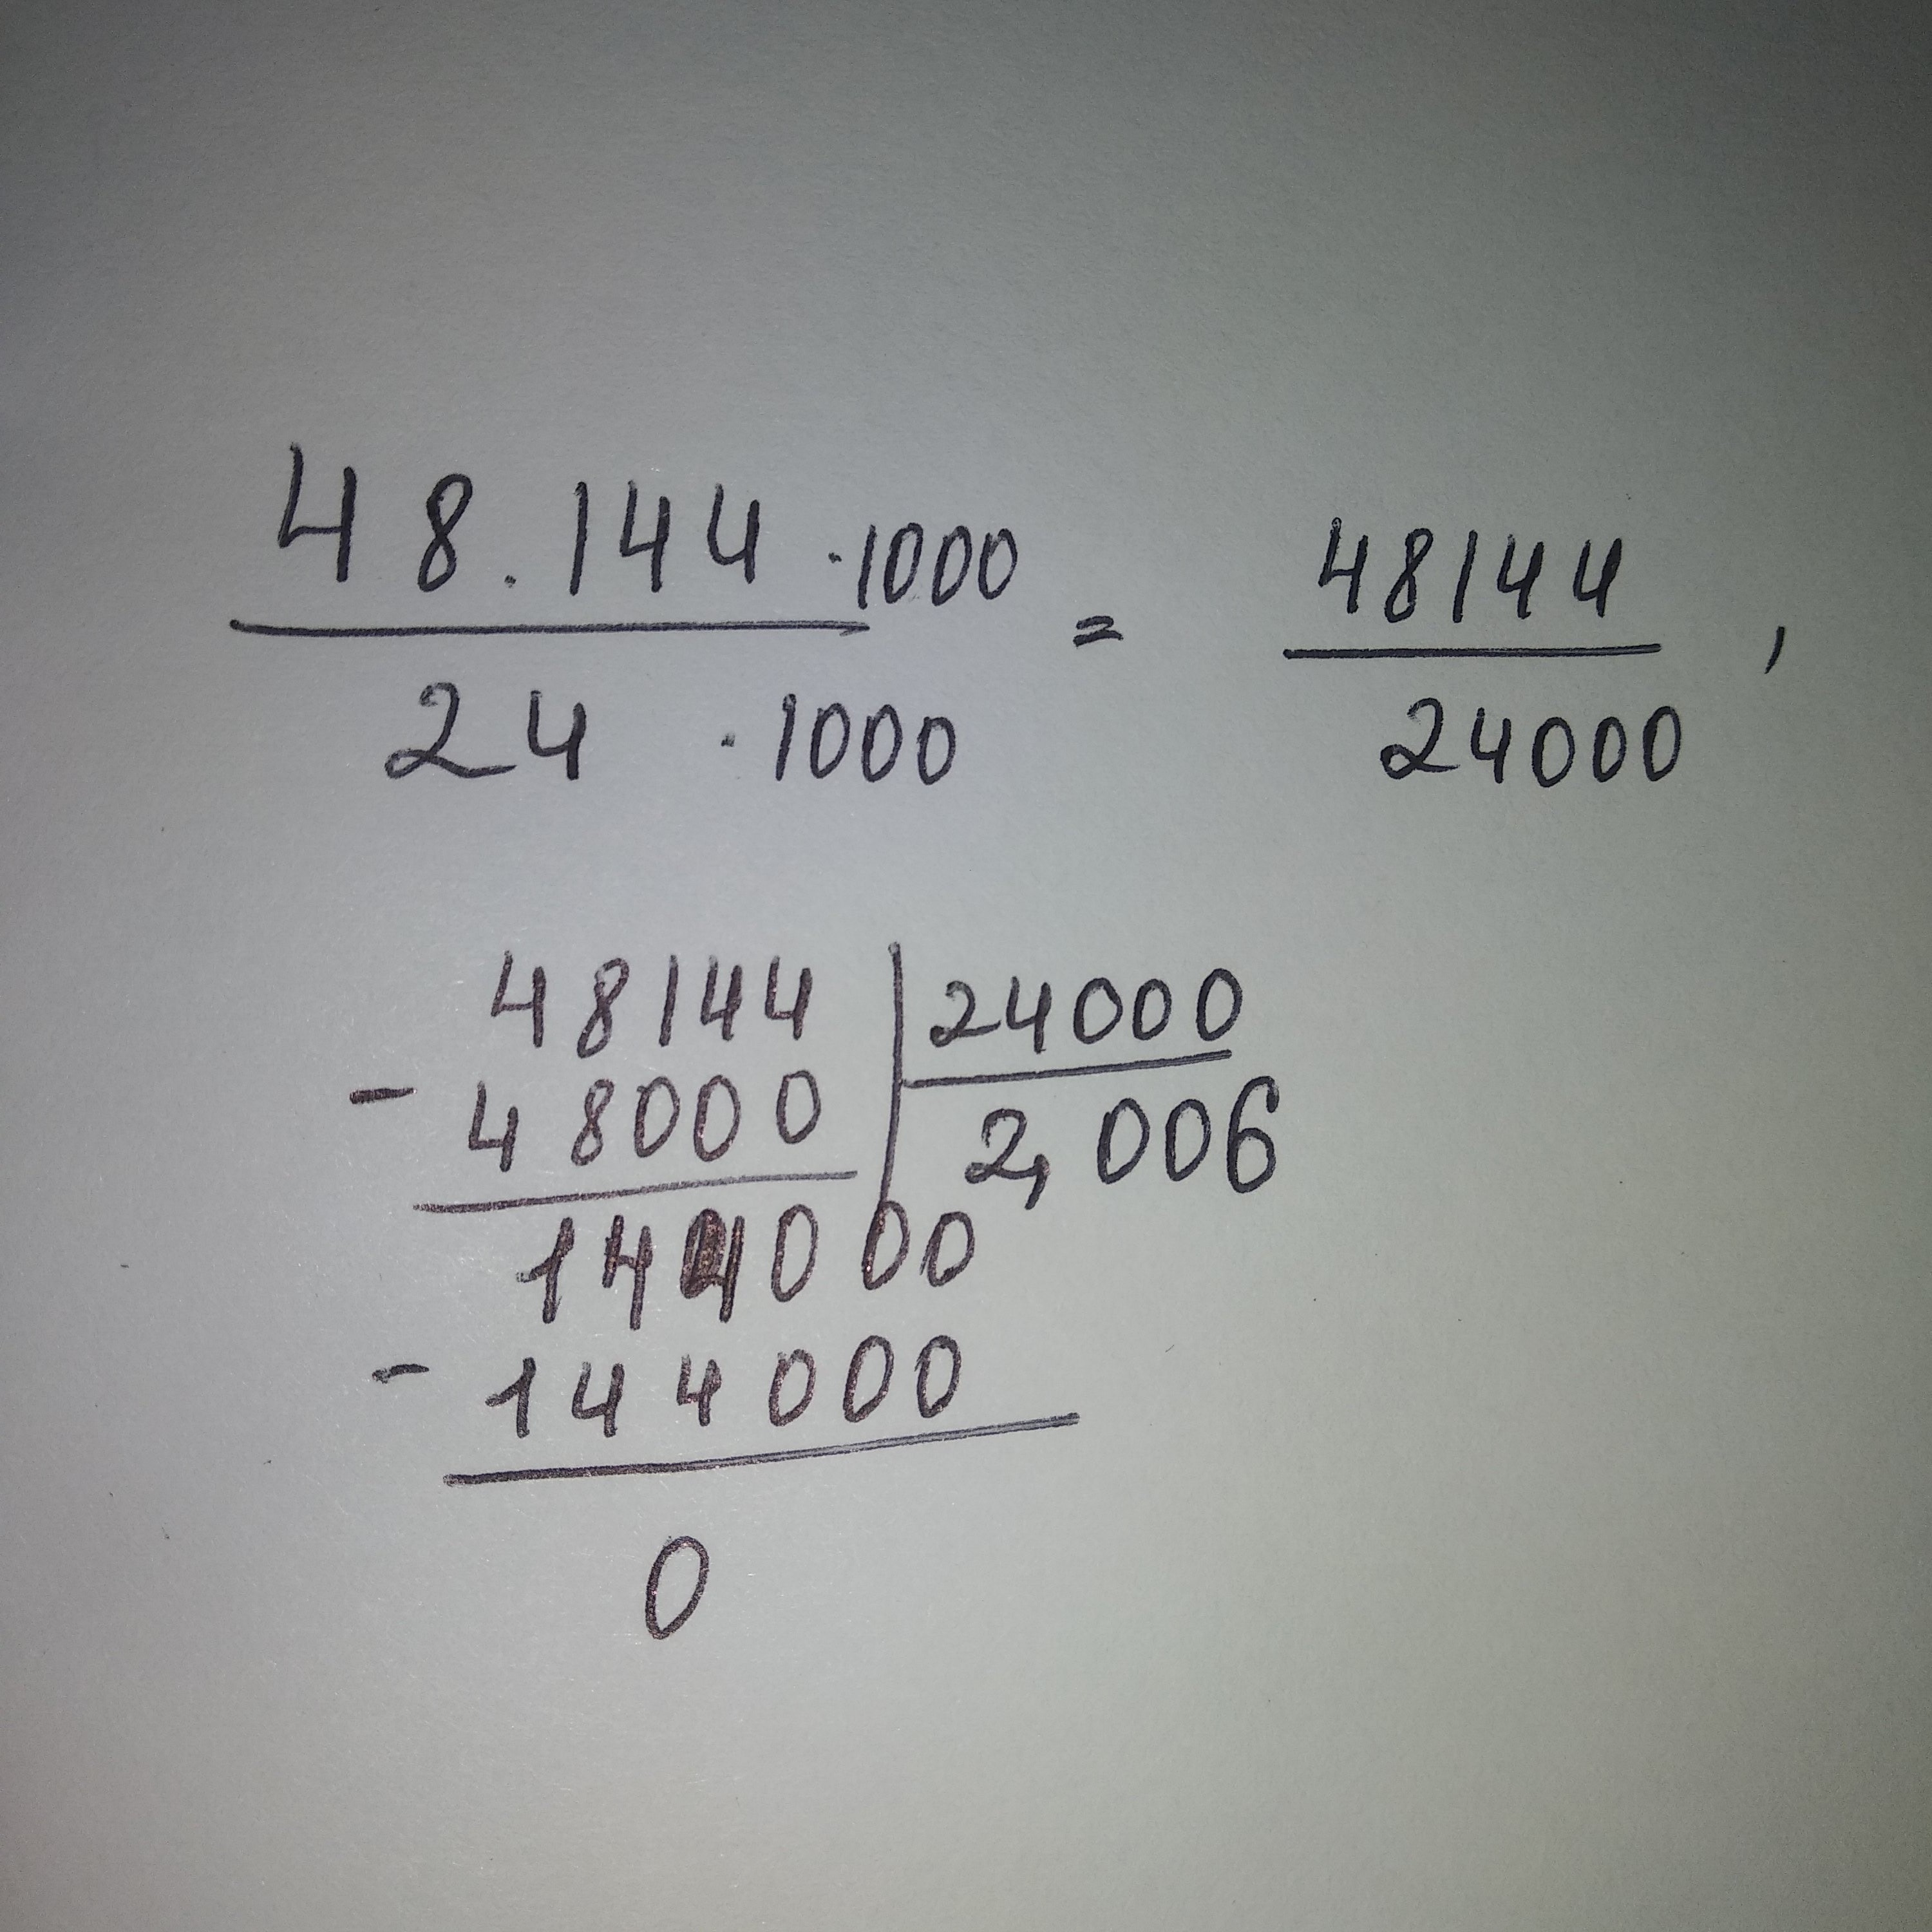 48.144 ·1000 = 48144 ,
24 ·1000 24000
48144 24000
- 48000 2,006
144000
- 144000
0